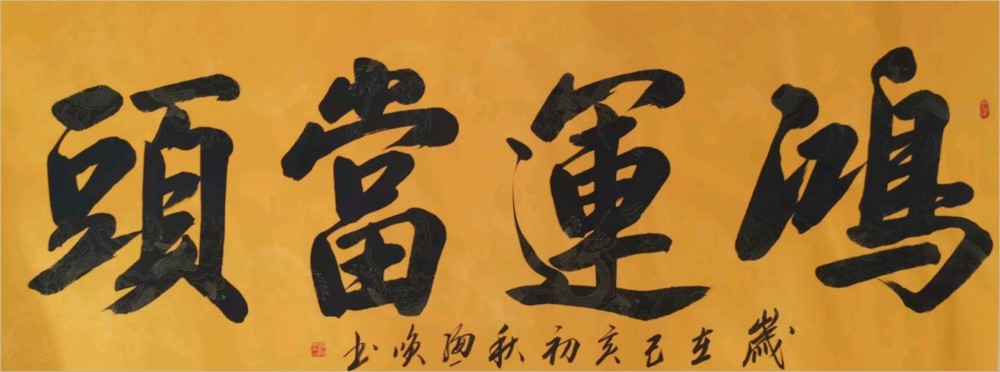 鴻運當頭
歲在己亥初秋
書